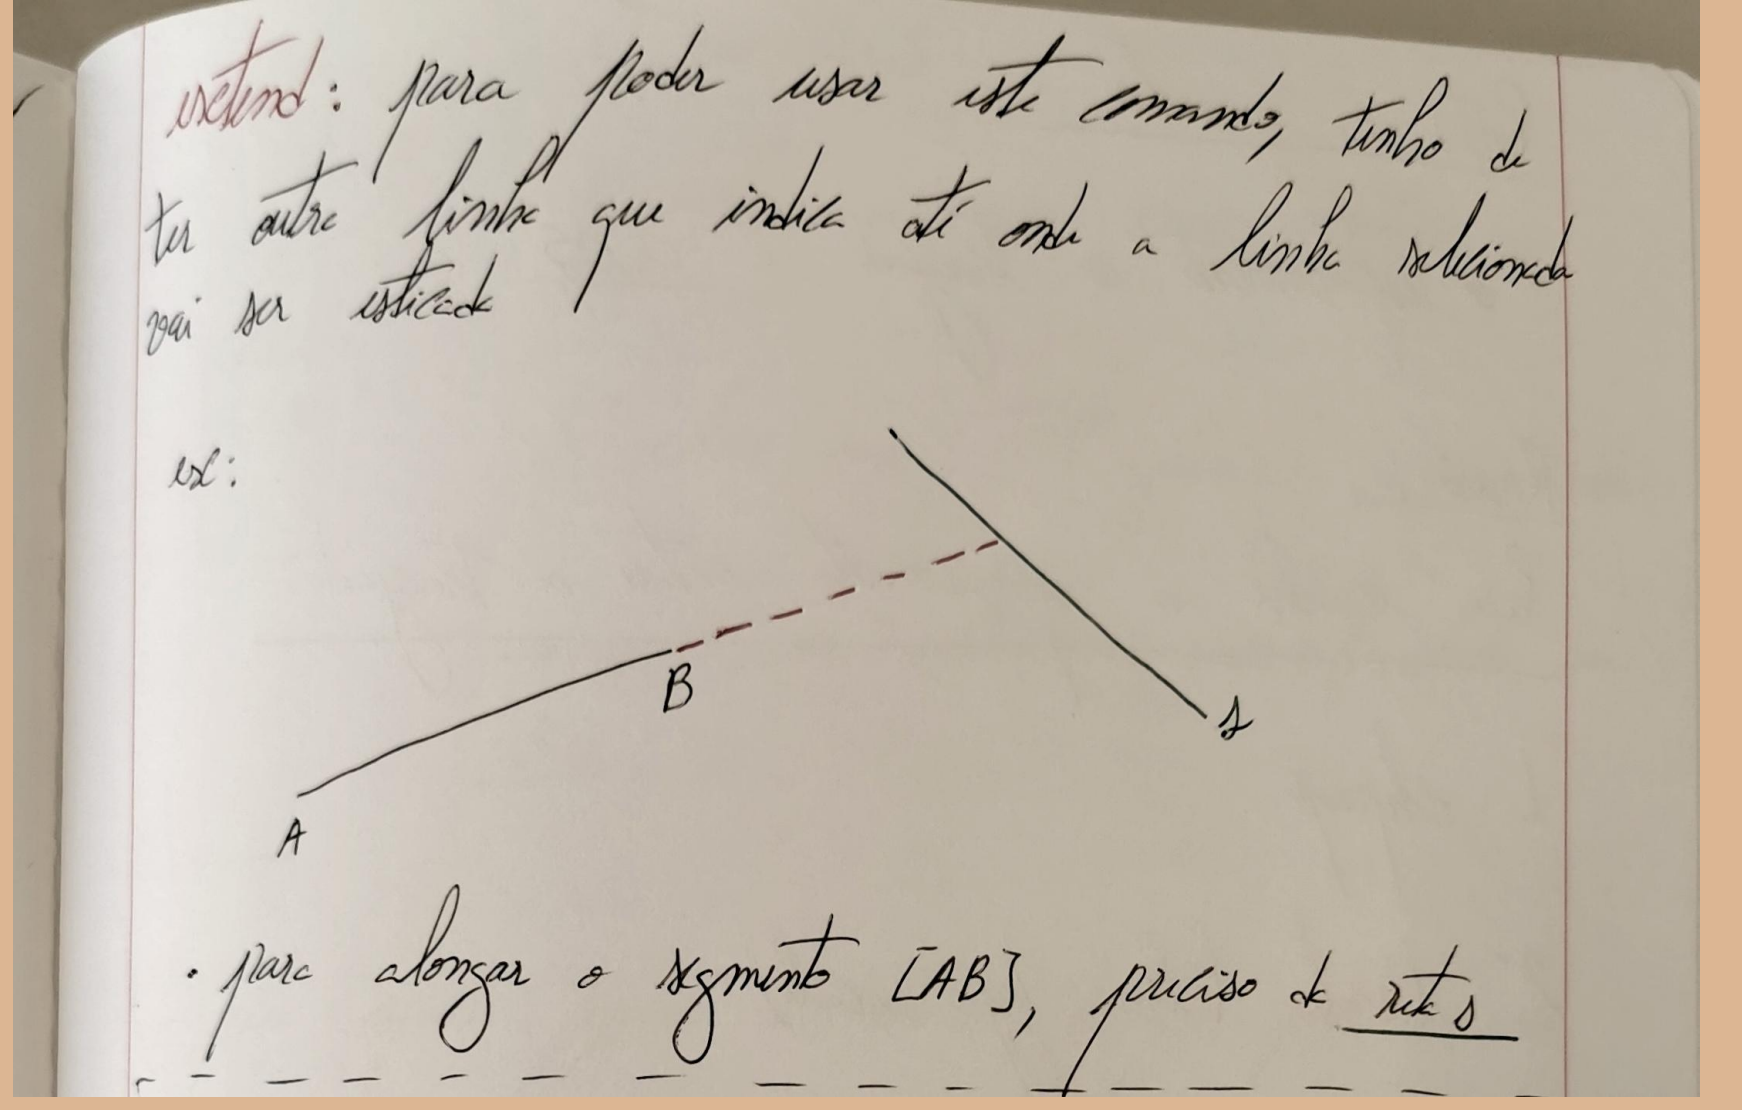 extend: para poder usar este comando, tenho de
ter outra linha que indica até onde a linha selecionada
vai ser esticada
ex:
B
s
A
• para alongar o segmento [AB], preciso da reta s